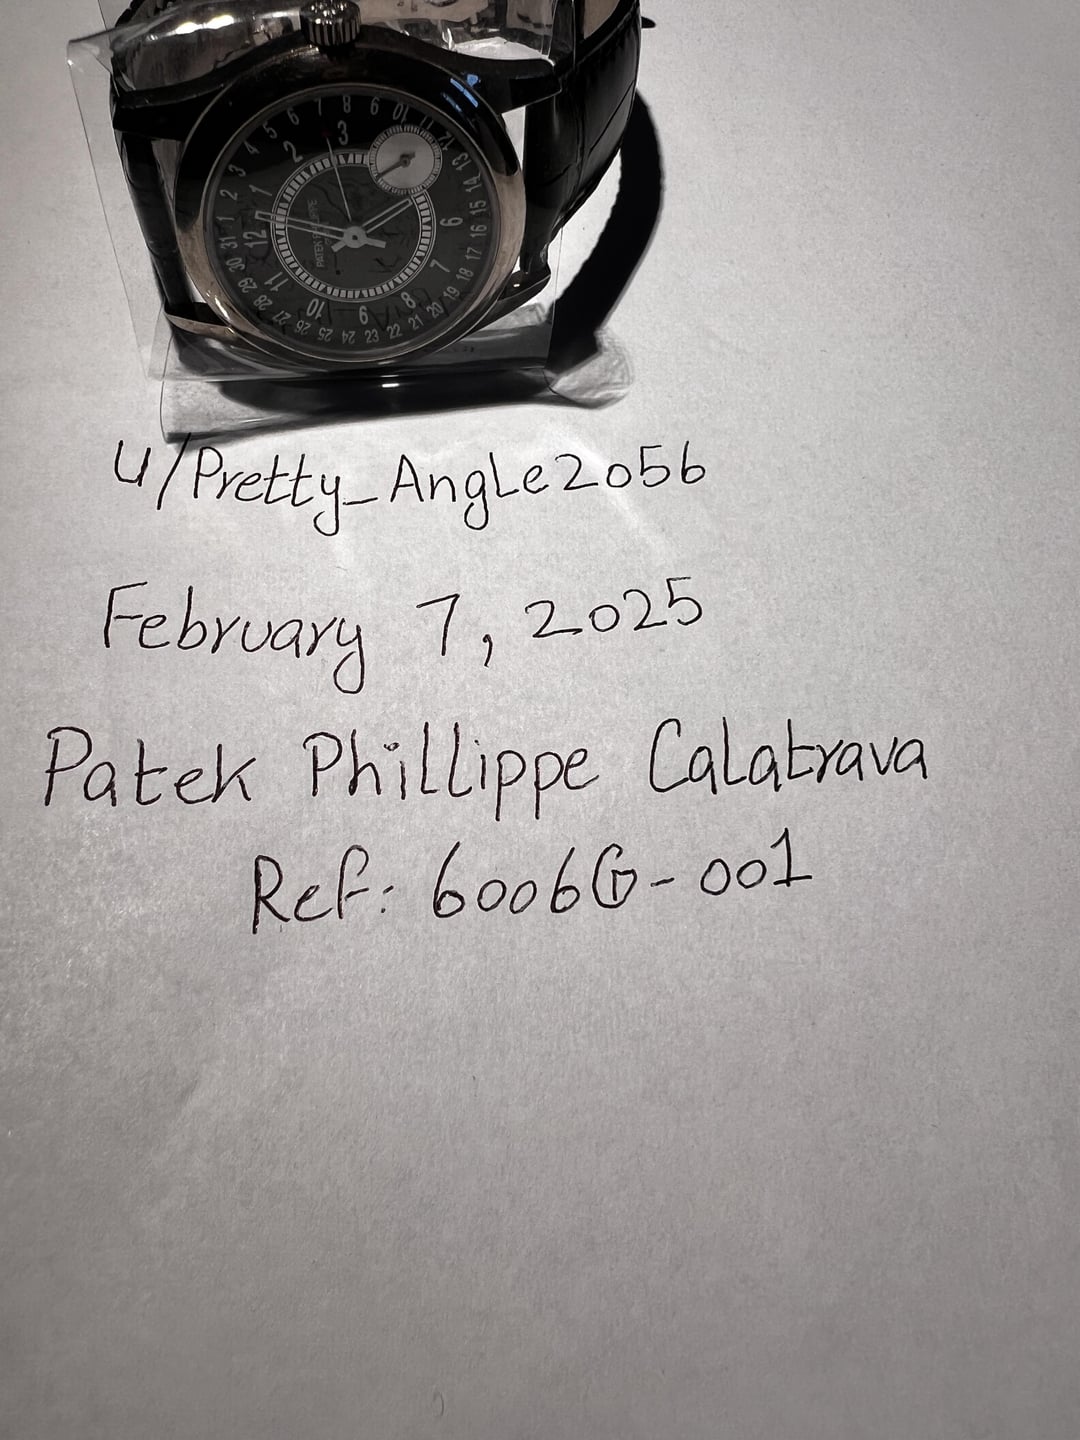 PATEK PHILIPPE
1 2 3 6 7 8 9 10 11 12
1 2 3 4 5 6 7 8 9 10 11 12 13 14 15 16 17 18 19 20 21 22 23 24 25 26 27 28 29 30 31
u/Pretty_Angle2056
February 7, 2025
Patek Phillippe Calatrava
Ref: 6006G-001